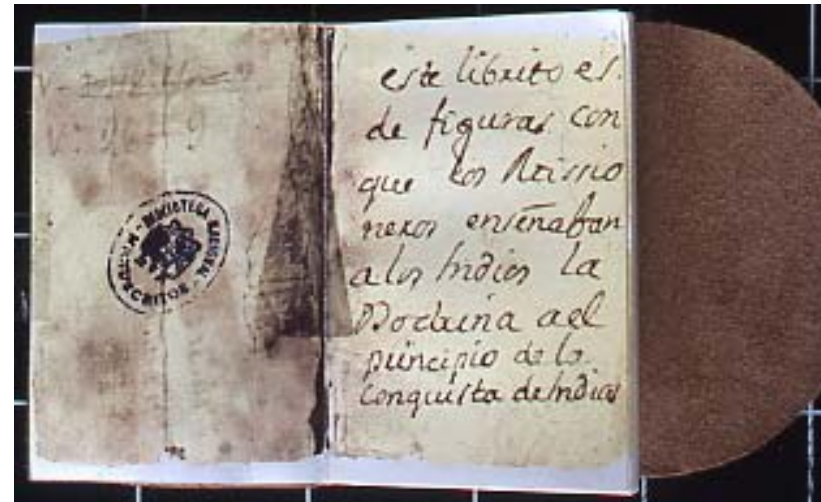 BIBLIOTECA NACIONAL
MANUSCRITOS
este librito es.
de figuras con
que los Missio
neros enseñaban
a los Indios la
Doctrina ael
principio de la
Conquista de Indias